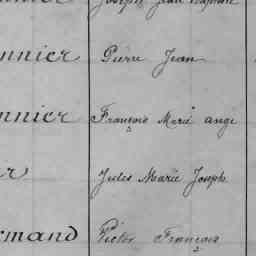 Joseph Jean Baptiste
nnier Pierre Jean
nnier François Marie ange
er Jules Marie Joseph
rmand Victor François